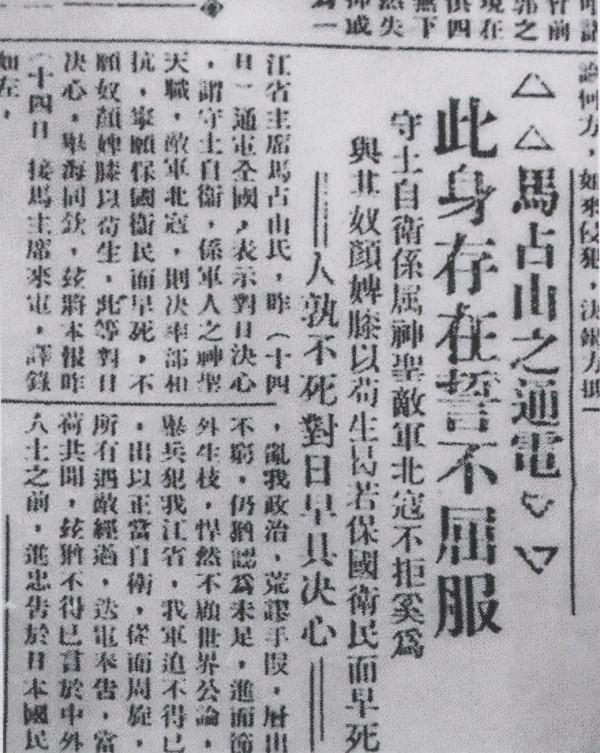 論何方，如來侵犯，決報力抵
△△馬占山之通電▽▽
此身存在誓不屈服
守土自衛係屬神聖敵軍北寇不拒奚為
與其奴顏婢膝以苟生曷若保國衛民而早死
人孰不死對日早具決心
江省主席馬占山氏，昨（十四
日）通電全國，表示對日決心
，謂守土自衛，係軍人之神聖
天職，敵軍北寇，則決率部相
抗，寧願保國衛民而早死，不
願奴顏婢膝以苟生，此等對日
決心，舉海同欽，茲將本報昨
（十四日）接馬主席來電，譯錄
如左，
，亂我政治，荒謬手段，層出
不窮，仍猶認為未足，進而節
外生枝，悍然不顧世界公論，
舉兵犯我江省，我軍迫不得已
，出以正當自衛，從而周旋，
所有遇敵經過，迭電奉告，當
荷共聞，茲猶不得已言於中外
人士之前，進忠告於日本國民